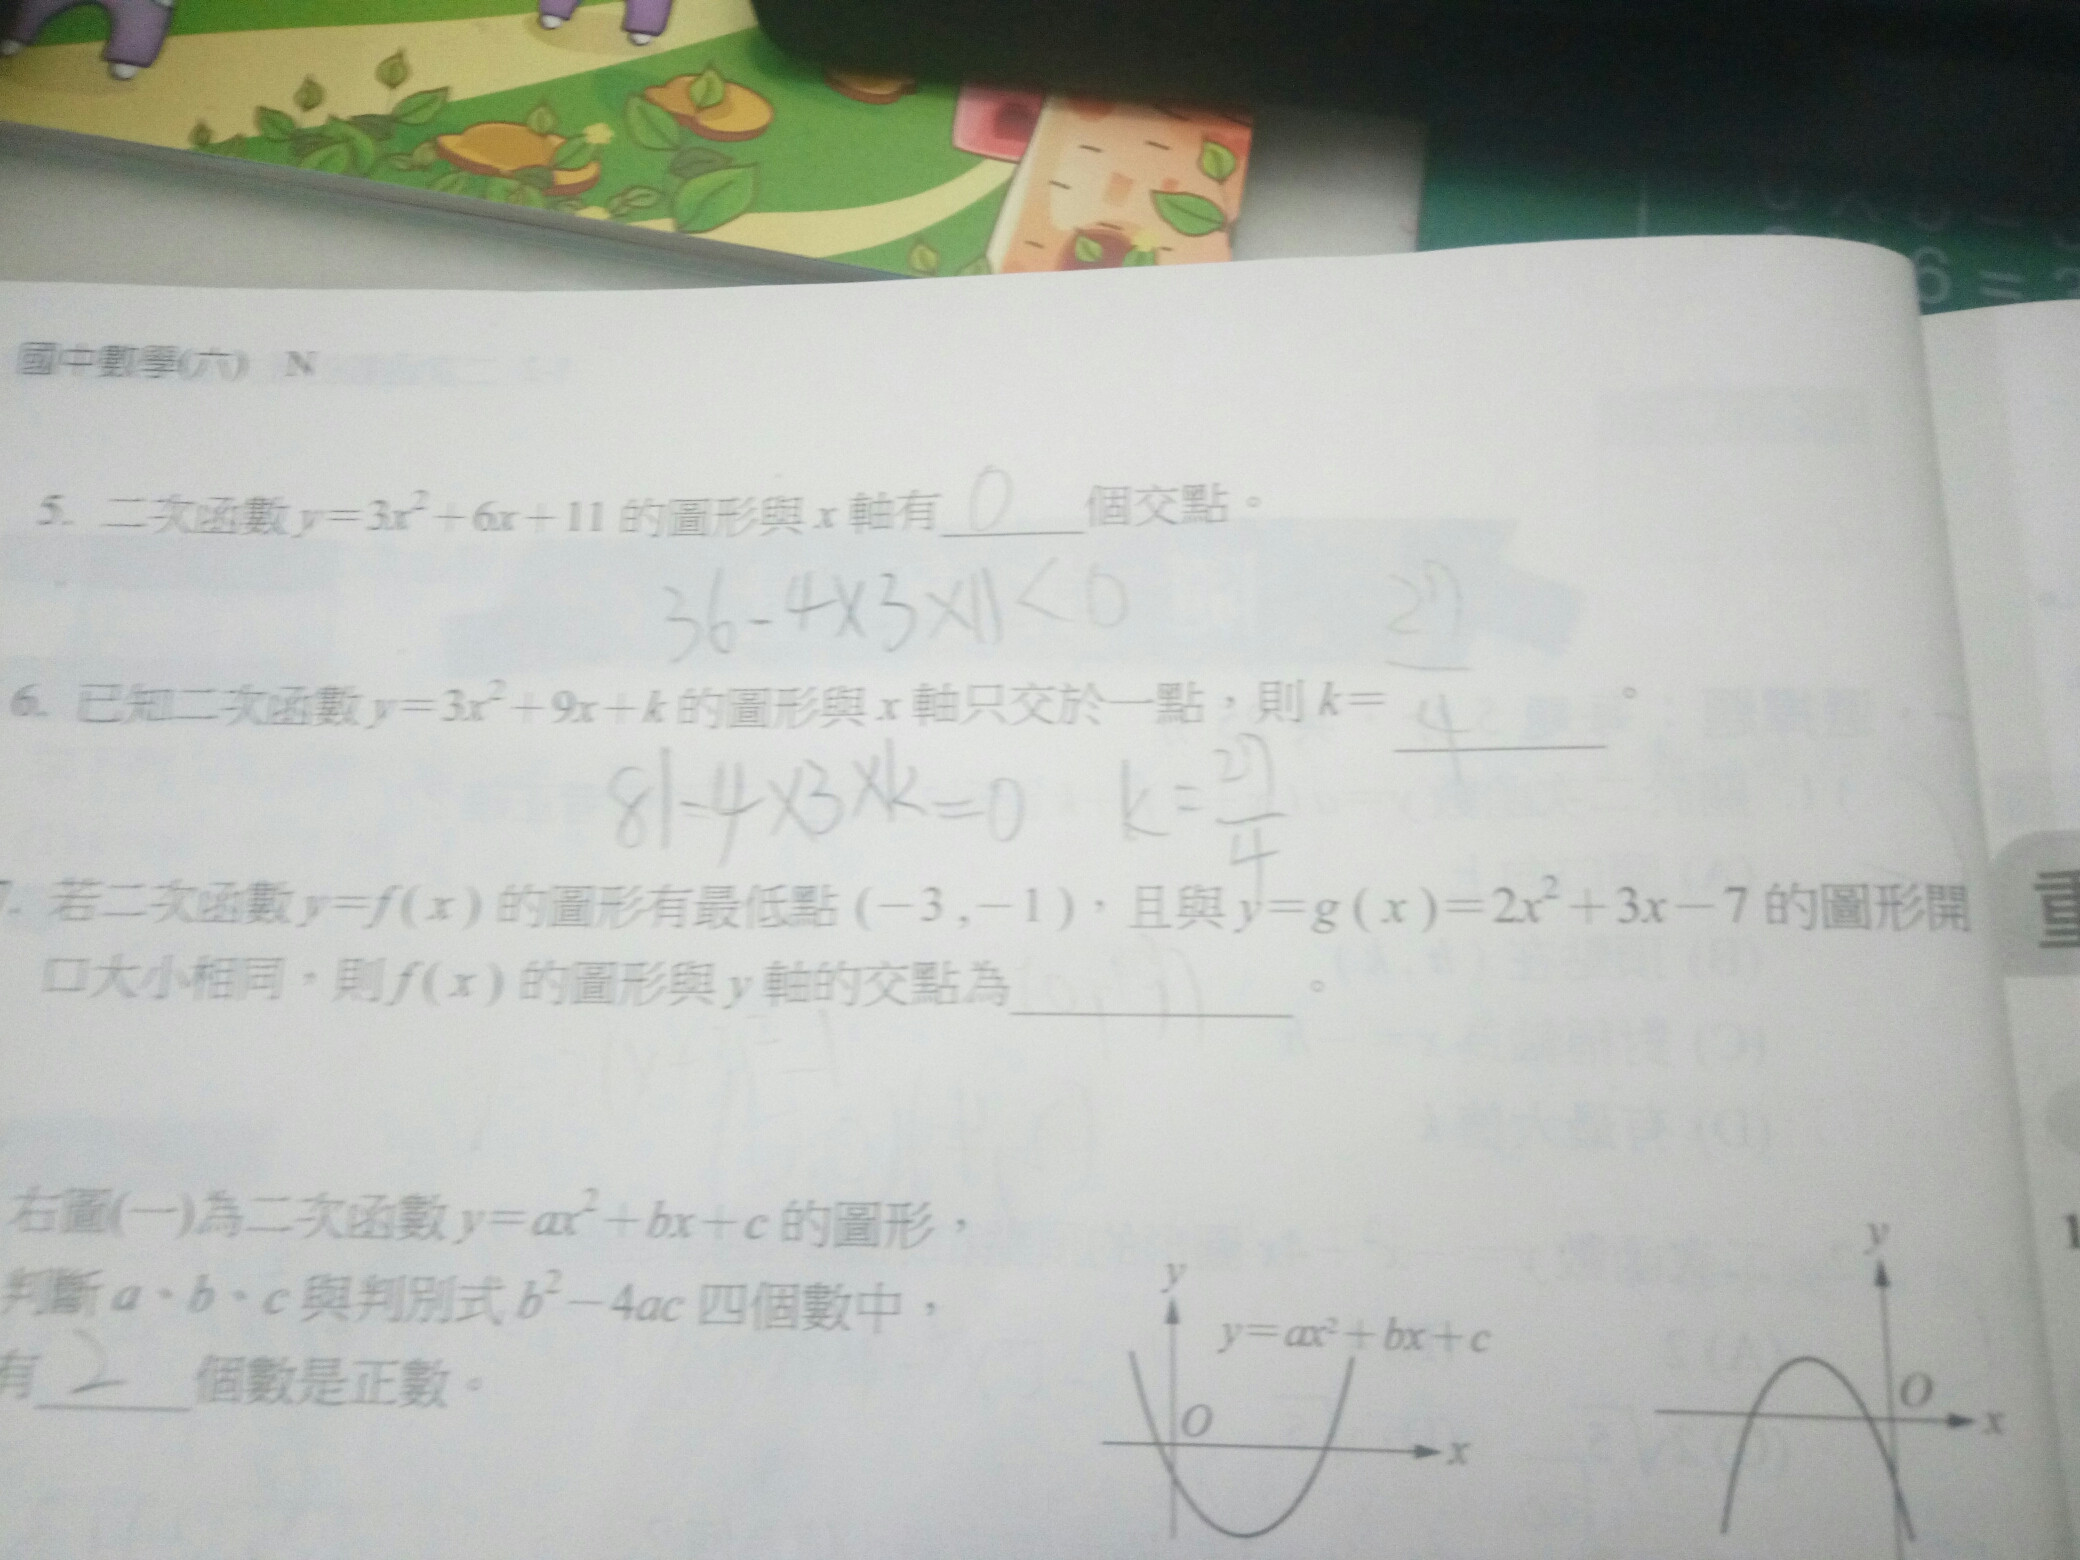 國中數學(六) N
5. 二次函數 y=3x²+6x+11 的圖形與 x 軸有 0 個交點。
36-4×3×11<0
6. 已知二次函數 y=3x²+9x+k 的圖形與 x 軸只交於一點,則 k= 27/4 。
81-4×3×k=0 k=27/4
7. 若二次函數 y=f(x) 的圖形有最低點 (-3,-1),且與 y=g(x)=2x²+3x-7 的圖形開
口大小相同,則 f(x) 的圖形與 y 軸的交點為 。
右圖(一)為二次函數 y=ax²+bx+c 的圖形,
判斷 a、b、c 與判別式 b²-4ac 四個數中,
有 2 個數是正數。
y
y=ax²+bx+c
O
x
y
O
x
重
1